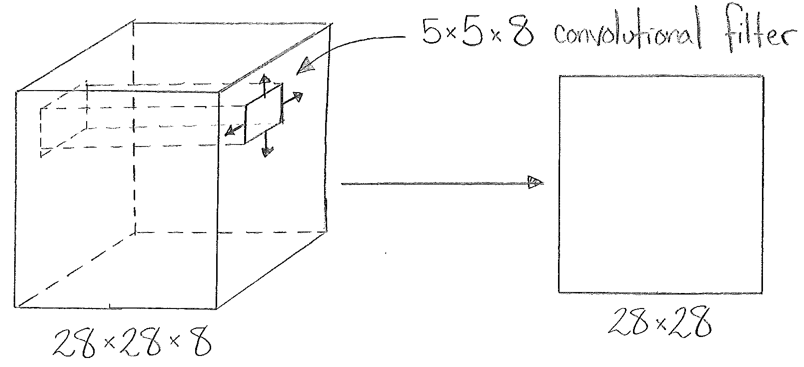 5×5×8 convolutional filter
28×28×8
28×28